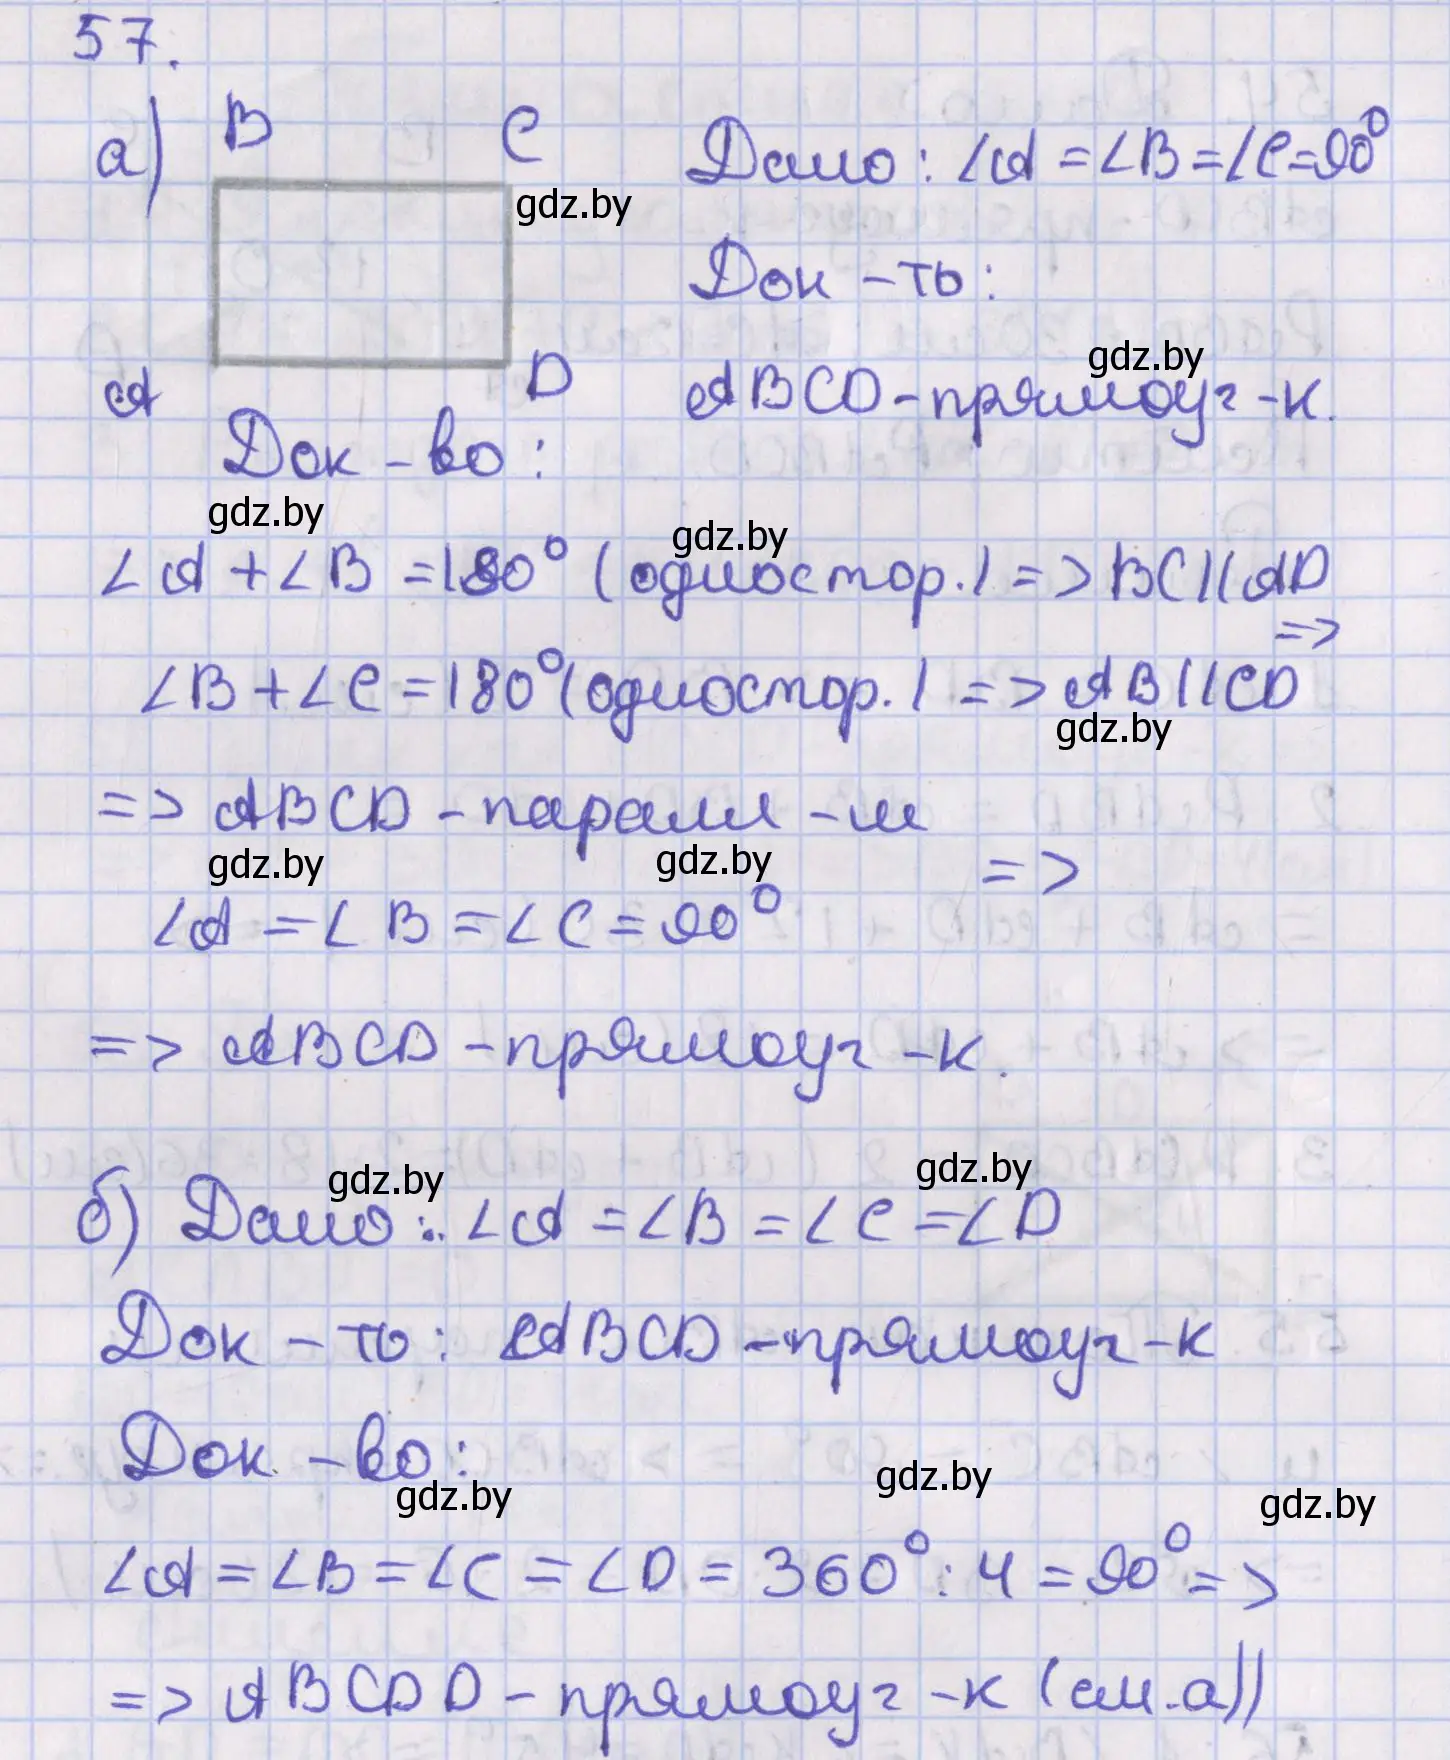 57.
а) B C Дано: ∠A = ∠B = ∠C = 90°
gdz.by
Док-ть:
gdz.by
A D ABCD - прямоуг-к.
Док-во:
gdz.by
gdz.by
∠A + ∠B = 180° (одностор.) => BC || AD
=>
∠B + ∠C = 180° (одностор.) => AB || CD
gdz.by
=> ABCD - паралл-м
gdz.by gdz.by =>
∠A = ∠B = ∠C = 90°
=> ABCD - прямоуг-к.
gdz.by gdz.by
б) Дано: ∠A = ∠B = ∠C = ∠D
Док-ть: ABCD - прямоуг-к
Док-во:
gdz.by gdz.by gdz.by
∠A = ∠B = ∠C = ∠D = 360° : 4 = 90° =>
=> ABCDD - прямоуг-к (см.а))